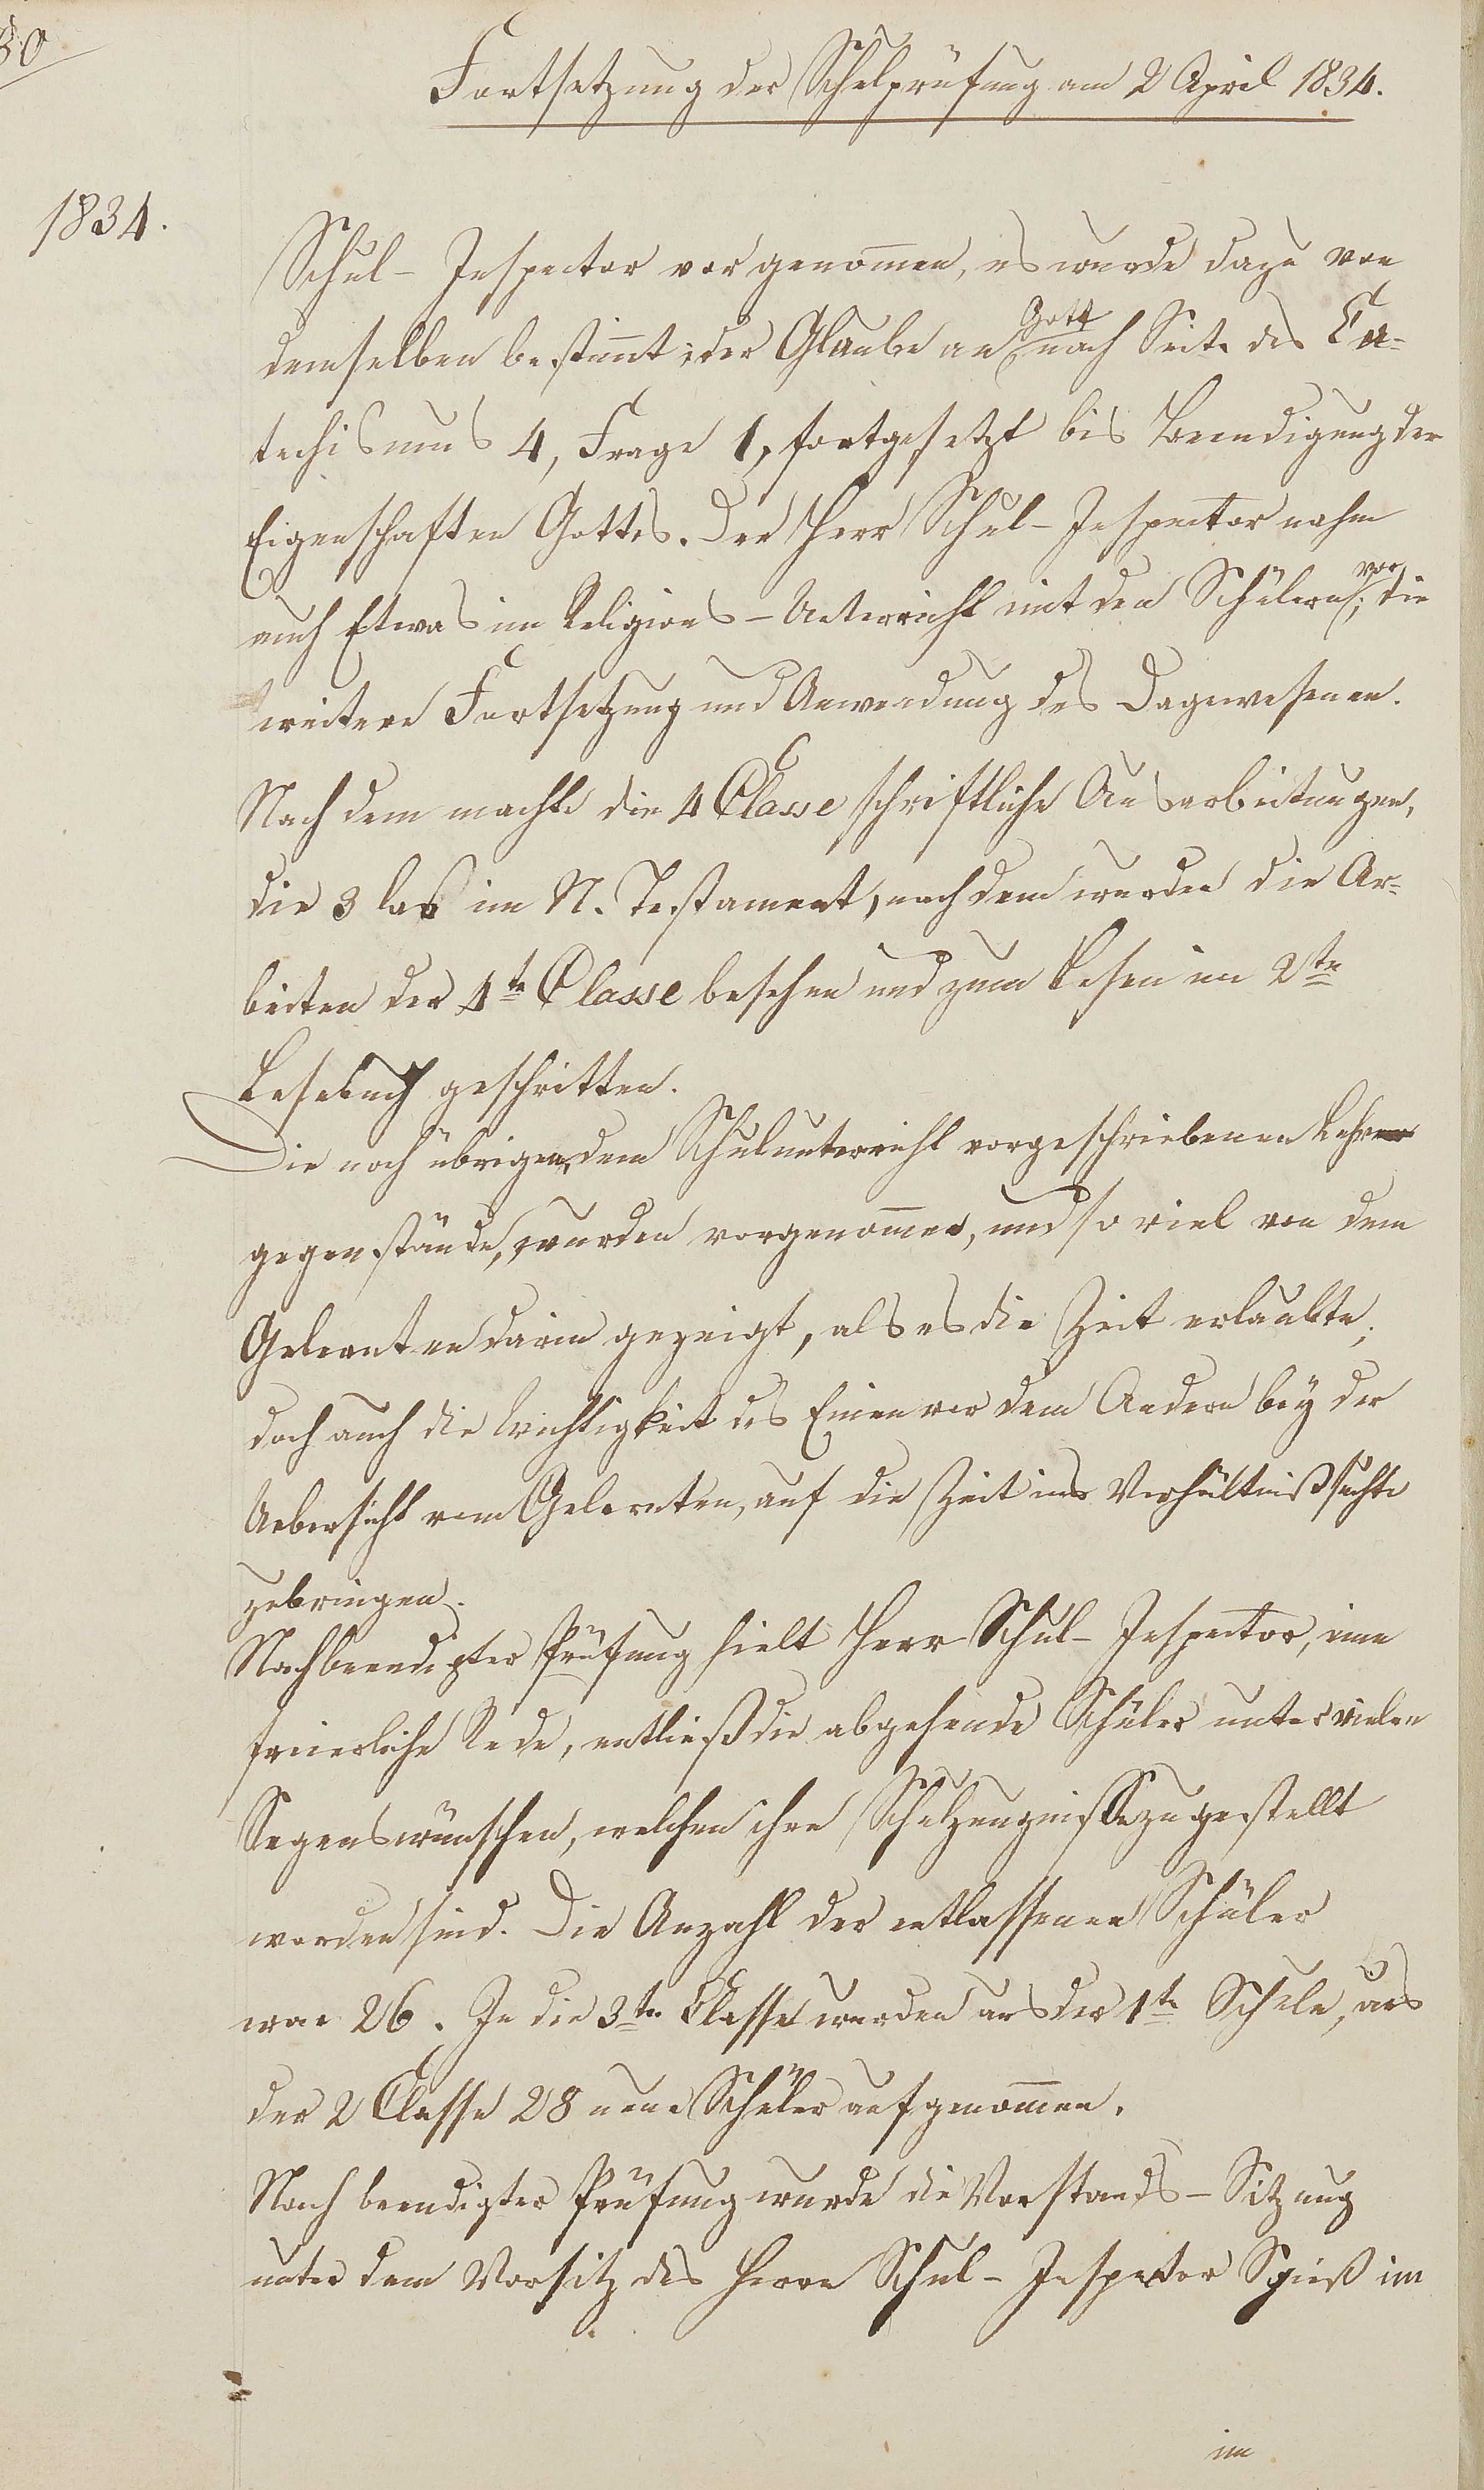 30
Fortsetzung der Schulprüfung am 2 April 1834.
1834.
Schul- Inspector vorgenom̅en, es wurde dazu von
demselben bestim̅t; der Glaube an Gott nach Seite des Ca-
techismus 4, Frage 1, fortgesetzt bis Beendigung der
Eigenschaften Gottes. Der Herr Schul- Inspector nahm
auch Etwas im Religions- Unterricht mit den Schülern vor; die
weitere Fortsetzung und Anwendung des Dagewesenen.
Nach dem machte die 4 Classe schriftliche Ausarbeitungen,
die 3 las im N. Testament, nach dem wurden die Ar-
beiten der 4te Classe besehen und zum Lesen im 2te
Lesebuch geschritten.
Die noch übrigen, dem Schulunterricht vorgeschriebenen Lehr
gegenstände, wurden vorgenom̅en, und so viel von dem
Gelernten darin gezeigt, als es die Zeit erlaubte;
doch auch die Wichtigkeit des Einen vor dem Andern bey der
Uebersicht vom Gelernten, auf die Zeit ins Verhältniß suchte
zubringen.
Nach beendigter Prüfung hielt Herr Schul- Inspector, eine
feierliche Rede, entließ die abgehende Schüler unter vielen
Segenswünschen, welchen ihre Schulzeugnisse zugestellt
worden sind. Die Anzahl der entlassenen Schüler
war 26. In die 3te Classe wurden aus der 1te Schule, aus
der 2 Classe 28 neue Schüler aufgenom̅en.
Nach beendigter Prüfung wurde die Vorstands- Sitzung
unter dem Vorsitz des Herrn Schul- Inspector Spieß im
im